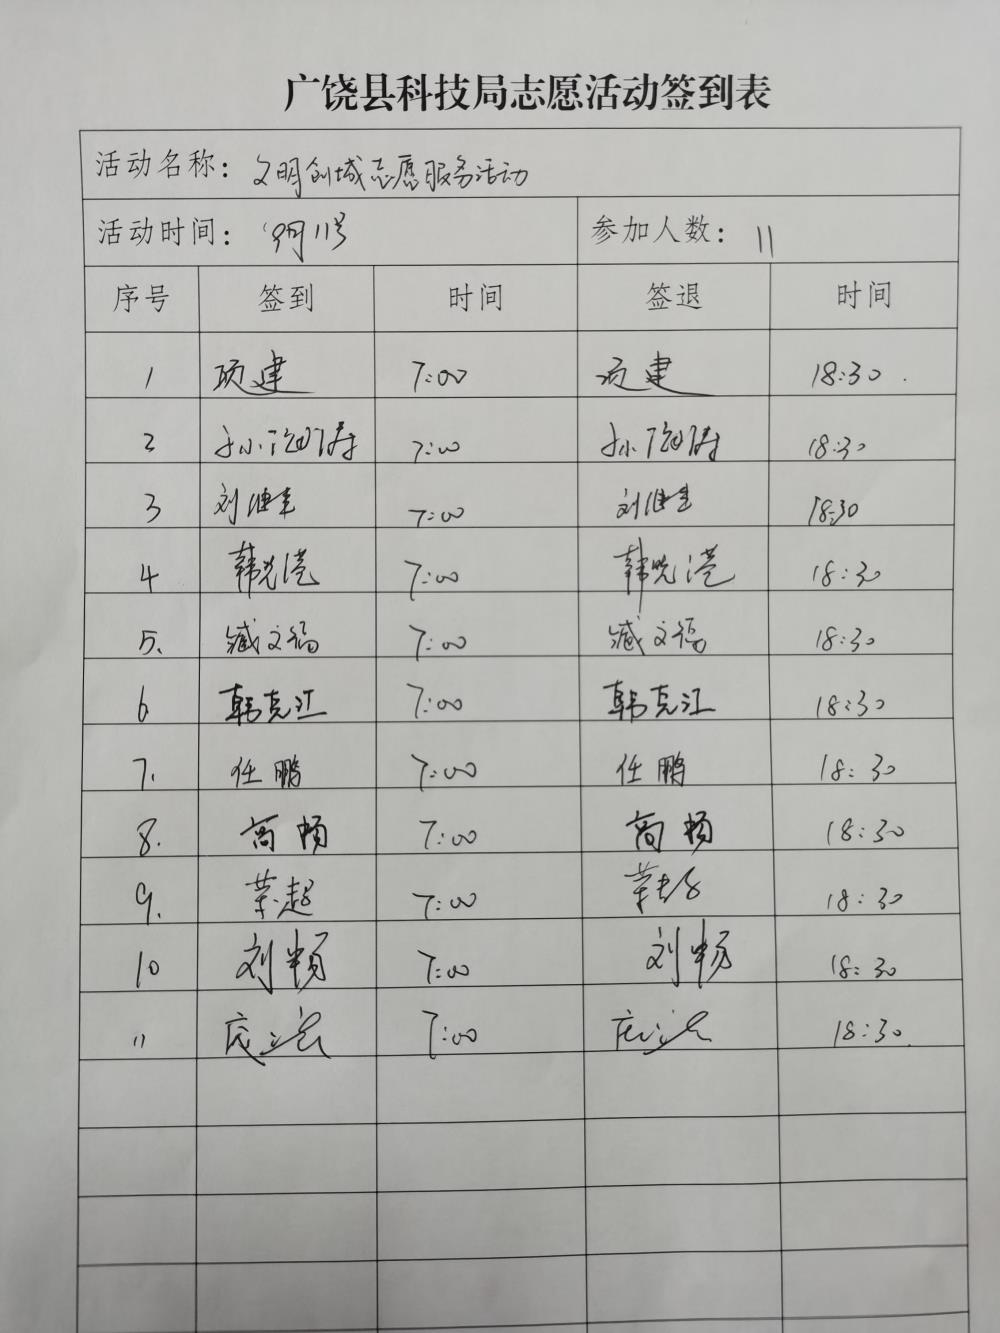 广饶县科技局志愿活动签到表
活动名称：文明创城志愿服务活动
活动时间：9月11号 参加人数：11
序号 签到 时间 签退 时间
1 项建 7:00 项建 18:30
2 7:00 18:30
3 刘 7:00 刘 18:30
4 韩光港 7:00 韩光港 18:30
5. 臧文福 7:00 臧文福 18:30
6 韩克江 7:00 韩克江 18:30
7. 任鹏 7:00 任鹏 18:30
8. 商杨 7:00 商杨 18:30
9. 荣超 7:00 荣超 18:30
10 刘畅 7:00 刘畅 18:30
11 7:00 18:30